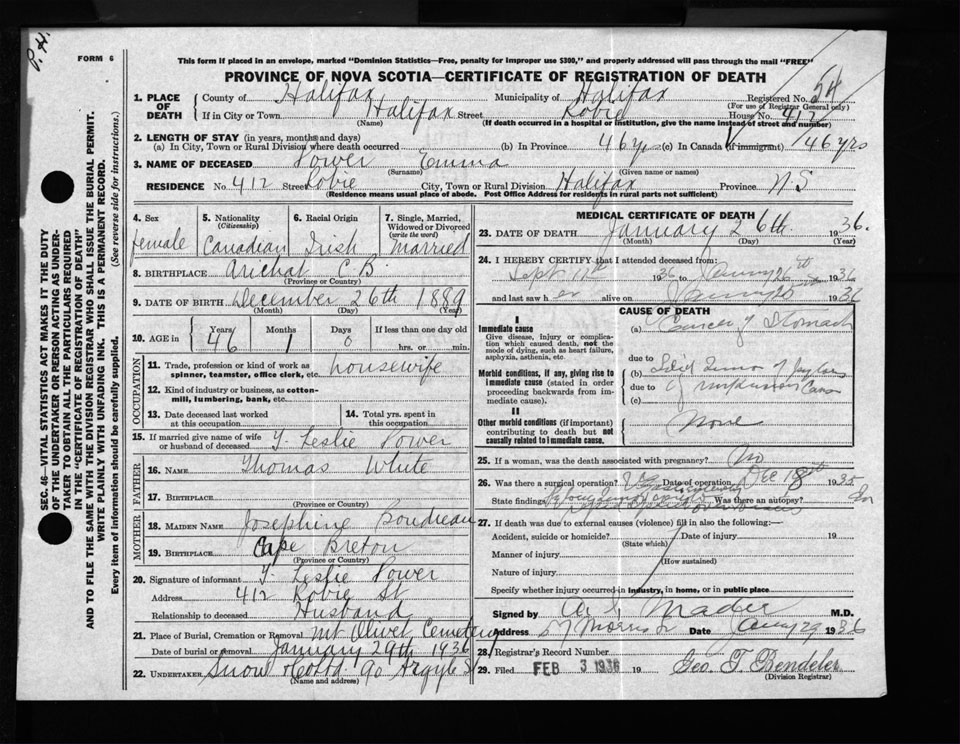 P. H.
FORM 6
This form if placed in an envelope, marked "Dominion Statistics—Free, penalty for improper use $300," and properly addressed will pass through the mail "FREE"
PROVINCE OF NOVA SCOTIA—CERTIFICATE OF REGISTRATION OF DEATH
1. PLACE OF DEATH County of Halifax Municipality of Halifax Registered No. 54
(For use of Registrar General only)
If in City or Town Halifax Street Robie House No. 412
(Name) (If death occurred in a hospital or institution, give the name instead of street and number)
2. LENGTH OF STAY (in years, months and days)
(a) In City, Town or Rural Division where death occurred (b) In Province 46 yrs (c) In Canada (if immigrant) 46 yrs
3. NAME OF DECEASED Power Emma
(Surname) (Given name or names)
RESIDENCE No. 412 Street Robie City, Town or Rural Division Halifax Province N S
(Residence means usual place of abode. Post Office Address for residents in rural parts not sufficient)
4. Sex female
5. Nationality (Citizenship) Canadian
6. Racial Origin Irish
7. Single, Married, Widowed or Divorced (write the word) Married
8. BIRTHPLACE Arichat C B.
(Province or Country)
9. DATE OF BIRTH December 26th 1889
(Month) (Day) (Year)
10. AGE in Years 46 Months 1 Days 0 If less than one day old hrs. or min.
OCCUPATION
11. Trade, profession or kind of work as spinner, teamster, office clerk, etc. housewife
12. Kind of industry or business, as cotton-mill, lumbering, bank, etc.
13. Date deceased last worked at this occupation
14. Total yrs. spent in this occupation
15. If married give name of wife or husband of deceased T. Leslie Power
FATHER
16. NAME Thomas White
17. BIRTHPLACE
(Province or Country)
MOTHER
18. MAIDEN NAME Josephine Boudreau
19. BIRTHPLACE Cape Breton
(Province or Country)
20. Signature of informant T. Leslie Power
Address 412 Robie St
Relationship to deceased Husband
21. Place of Burial, Cremation or Removal Mt Olivet Cemetery
Date of burial or removal January 29th 1936
22. UNDERTAKER Snow & Co Ltd 90 Argyle St
(Name and address)
MEDICAL CERTIFICATE OF DEATH
23. DATE OF DEATH January 26th. 1936.
(Month) (Day) (Year)
24. I HEREBY CERTIFY that I attended deceased from:
Sept 11th 1936 to 26th 1936
and last saw her alive on 1936
CAUSE OF DEATH
I
Immediate cause
Give disease, injury or complication which caused death, not the mode of dying, such as heart failure, asphyxia, asthenia, etc.
(a) Cancer of Stomach
due to
Morbid conditions, if any, giving rise to immediate cause (stated in order proceeding backwards from immediate cause).
(b)
due to
(c)
II
Other morbid conditions (if important) contributing to death but not causally related to immediate cause.
None
25. If a woman, was the death associated with pregnancy? No
26. Was there a surgical operation? Date of operation Dec 18th 1935
State findings Was there an autopsy?
27. If death was due to external causes (violence) fill in also the following:—
Accident, suicide or homicide? Date of injury 19
(State which)
Manner of injury
(How sustained)
Nature of injury
Specify whether injury occurred in industry, in home, or in public place
Signed by Mader M.D.
Address 57 Morris St Date 29 1936
28. Registrar's Record Number
29. Filed FEB 3 1936 19 Geo. T.
(Division Registrar)
SEC. 46—VITAL STATISTICS ACT MAKES IT THE DUTY
OF THE UNDERTAKER OR PERSON ACTING AS UNDER-
TAKER TO OBTAIN ALL THE PARTICULARS REQUIRED
IN THE "CERTIFICATE OF REGISTRATION OF DEATH"
AND TO FILE THE SAME WITH THE DIVISION REGISTRAR WHO SHALL ISSUE THE BURIAL PERMIT.
WRITE PLAINLY WITH UNFADING INK. THIS IS A PERMANENT RECORD.
Every item of information should be carefully supplied. (See reverse side for instructions.)